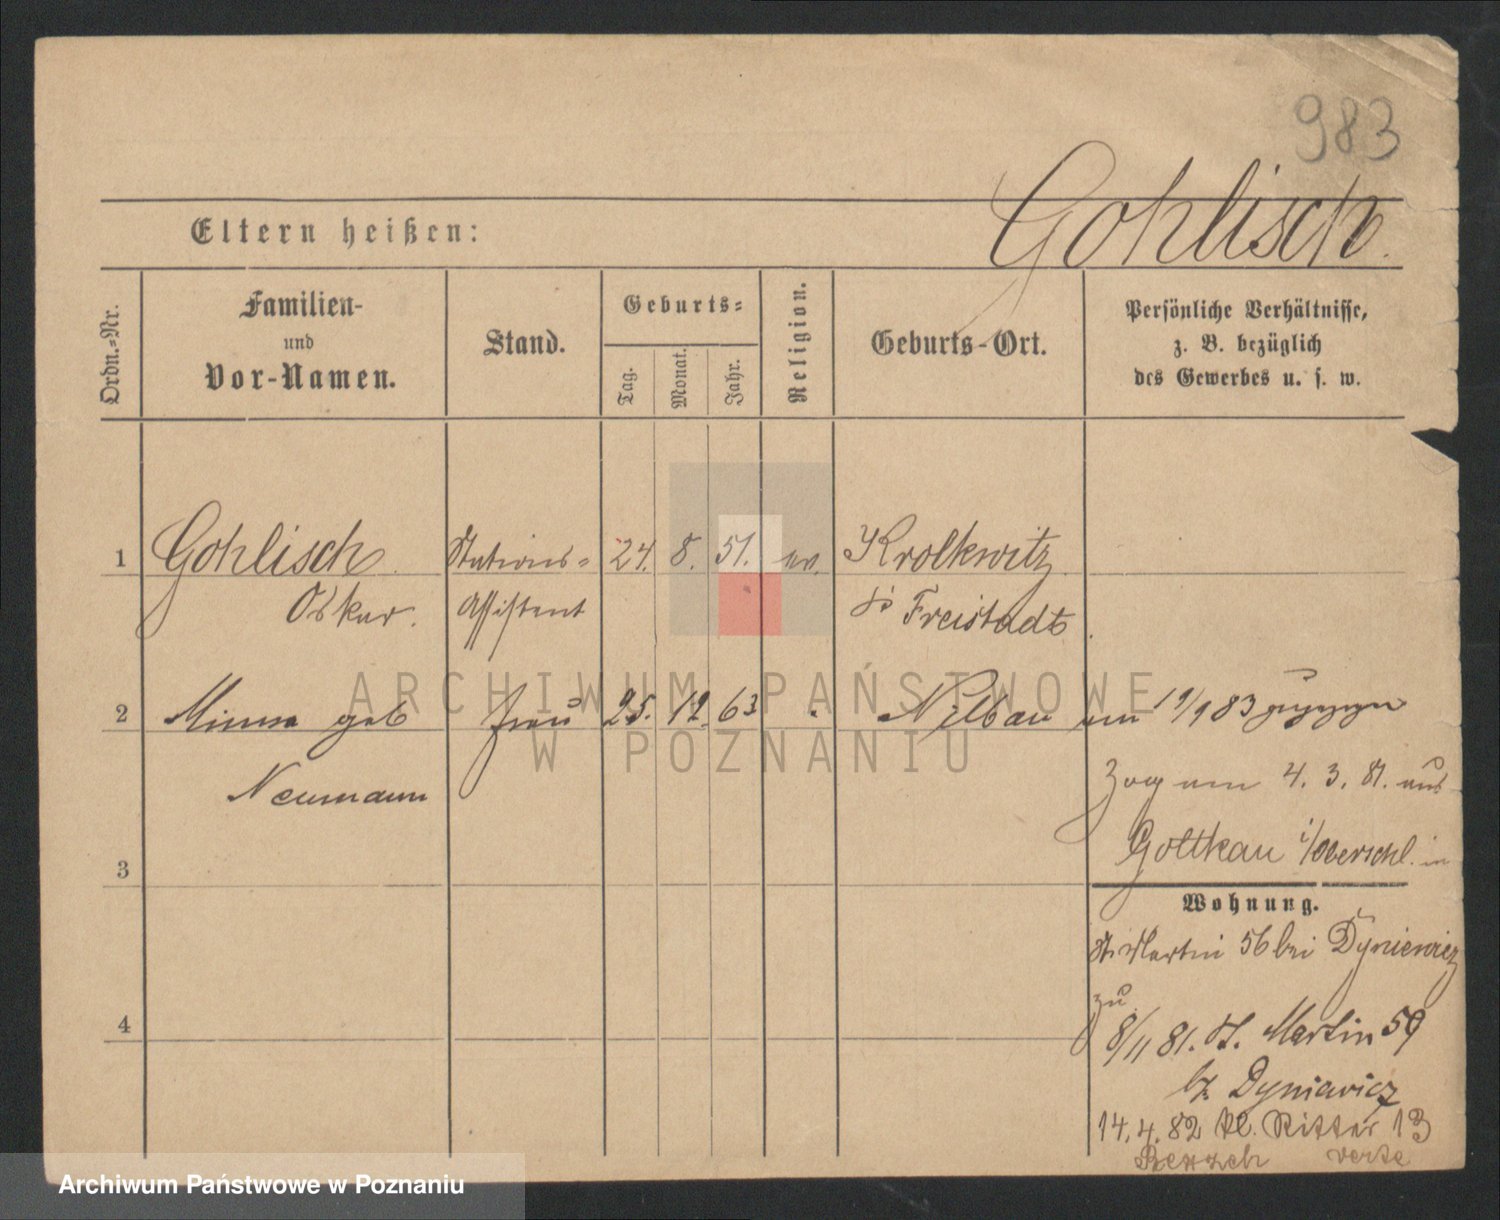 983
Gohlisch.
Eltern heißen:
Ordn.-Nr.
Familien-
und
Vor-Namen.
Stand.
Geburts-
Tag.
Monat.
Jahr.
Religion.
Geburts-Ort.
Persönliche Verhältnisse,
z. B. bezüglich
des Gewerbes u. s. w.
1 Gohlisch Stations- 24. 8. 51. ev. Krolkwitz
Oskar. Assistent Freistadt.
ARCHIWUM PAŃSTWOWE
2 Minna geb Frau 25. 12. 63 Nilbau am 19/9 83
W POZNANIU
Neumann
Zog am 4. 3. 81. aus
3 Gottkau i/Oberschl. in
Wohnung.
St. Martin 56 bei Dyniewicz
zu
4 8/11 81. St. Martin 59
bz. Dyniewicz
14. 4. 82 kl. Ritter 13
verte
Archiwum Państwowe w Poznaniu